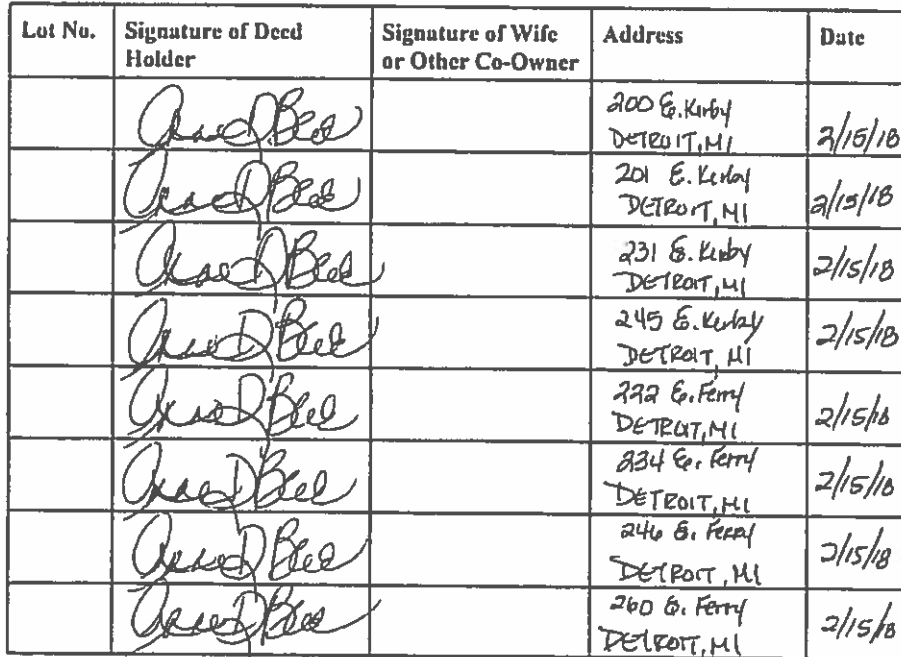 Lot No. Signature of Deed Signature of Wife Address Date
Holder or Other Co-Owner
200 E. Kirby
DETROIT, MI 2/15/18
201 E. Kirby
DETROIT, MI 2/15/18
231 E. Kirby
DETROIT, MI 2/15/18
245 E. Kirby
DETROIT, MI 2/15/18
222 E. Ferry
DETROIT, MI 2/15/18
234 E. Ferry
DETROIT, MI 2/15/18
246 E. Ferry
DETROIT, MI 2/15/18
260 E. Ferry
DETROIT, MI 2/15/18